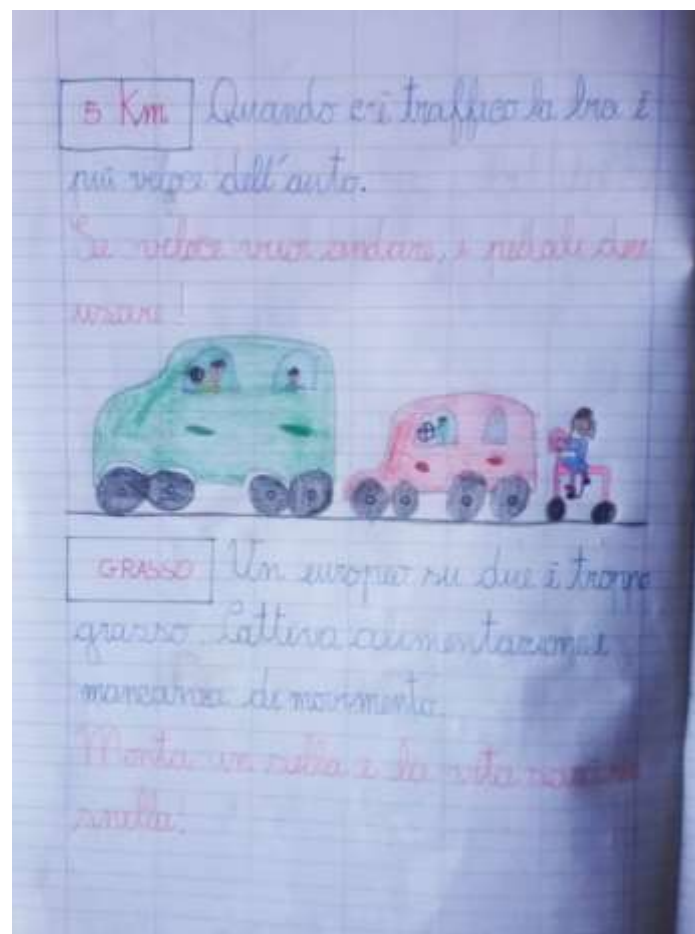 5 Km Quando c'è traffico la bici è
più veloce dell'auto.
Se veloce vuoi andare, i pedali devi
usare!
GRASSO Un europeo su due è troppo
grasso. Cattiva alimentazione e
mancanza di movimento.
Monta in sella e la vita sarà
snella!